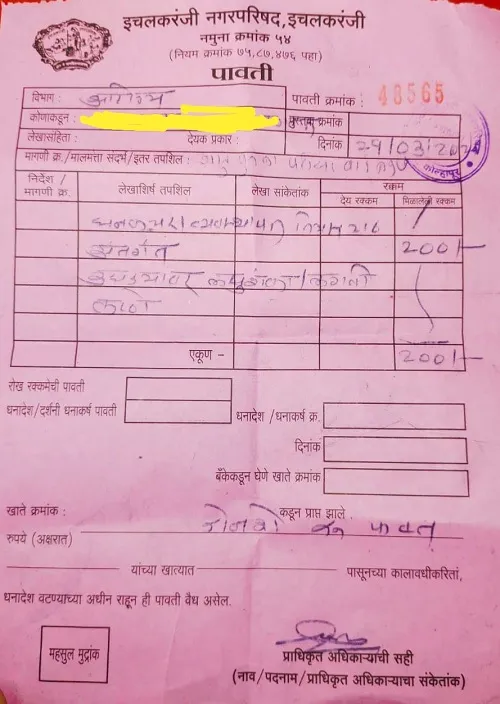 इचलकरंजी नगरपरिषद, इचलकरंजी
नमुना क्रमांक ५४
(नियम क्रमांक ७५,८७,४७६ पहा)
पावती
विभाग : आरोग्य
पावती क्रमांक : 48565
कोणाकडून :
पुस्तक क्रमांक
लेखासंहिता : देयक प्रकार : दिनांक 29/03/202
मागणी क्र./मालमत्ता संदर्भ/इतर तपशिल :
निर्देश / मागणी क्र. लेखाशिर्ष तपशिल लेखा संकेतांक रक्कम
देय रक्कम मिळालेली रक्कम
घनकचरा व्यवस्थापन नियम २०१६
अंतर्गत 200/-
उघड्यावर लघुशंका /
केली
एकूण - 200/-
रोख रक्कमेची पावती
धनादेश/दर्शनी धनाकर्ष पावती
धनादेश /धनाकर्ष क्र.
दिनांक
बँकेकडून घेणे खाते क्रमांक
खाते क्रमांक : कडून प्राप्त झाले .
रुपये (अक्षरात) दोनशे रु पावत
यांच्या खात्यात पासूनच्या कालावधीकरिता,
धनादेश वटण्याच्या अधीन राहून ही पावती वैध असेल.
महसुल मुद्रांक
प्राधिकृत अधिकाऱ्याची सही
(नाव/पदनाम/प्राधिकृत अधिकाऱ्याचा संकेतांक)